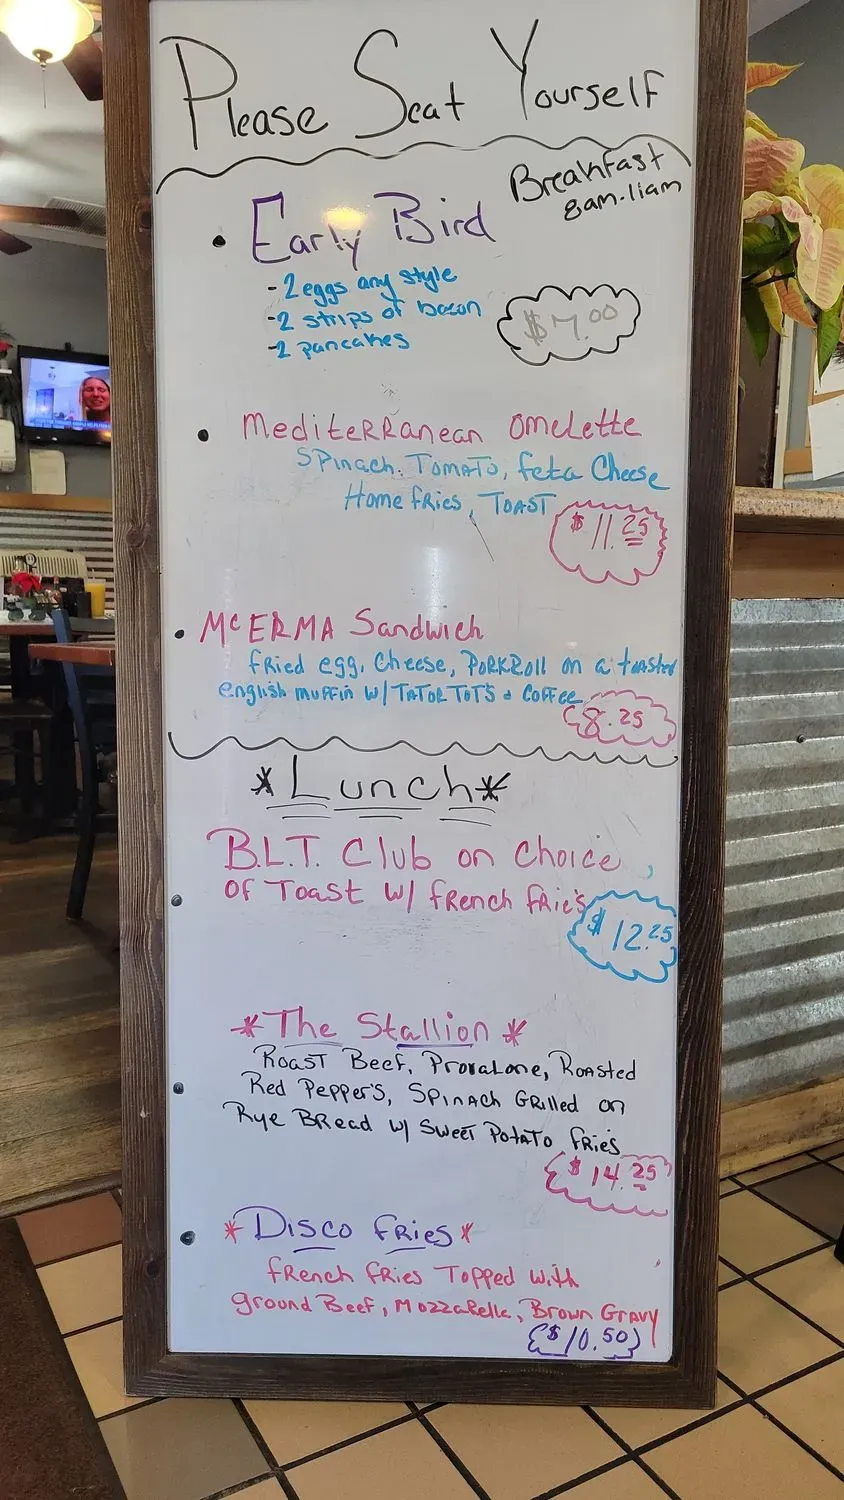 Please Seat Yourself
Breakfast
8am-11am
• Early Bird
-2 eggs any style
-2 strips of bacon
-2 pancakes
$7.00
• Mediterranean Omelette
Spinach, Tomato, feta Cheese
Home fries, Toast
$11.25
• McERMA Sandwich
fried egg, Cheese, PorkRoll on a toasted
english muffin w/TATOR TOT'S & COFFEE
8.25
*Lunch*
B.L.T. Club on Choice
• of Toast w/ french frie's
$12.25
*The Stallion*
Roast Beef, Provalone, Roasted
• Red Pepper's, Spinach Grilled on
Rye Bread w/ Sweet Potato frie's
$14.25
• *Disco fries*
french fries Topped with
ground Beef, Mozzarella, Brown Gravy
$10.50